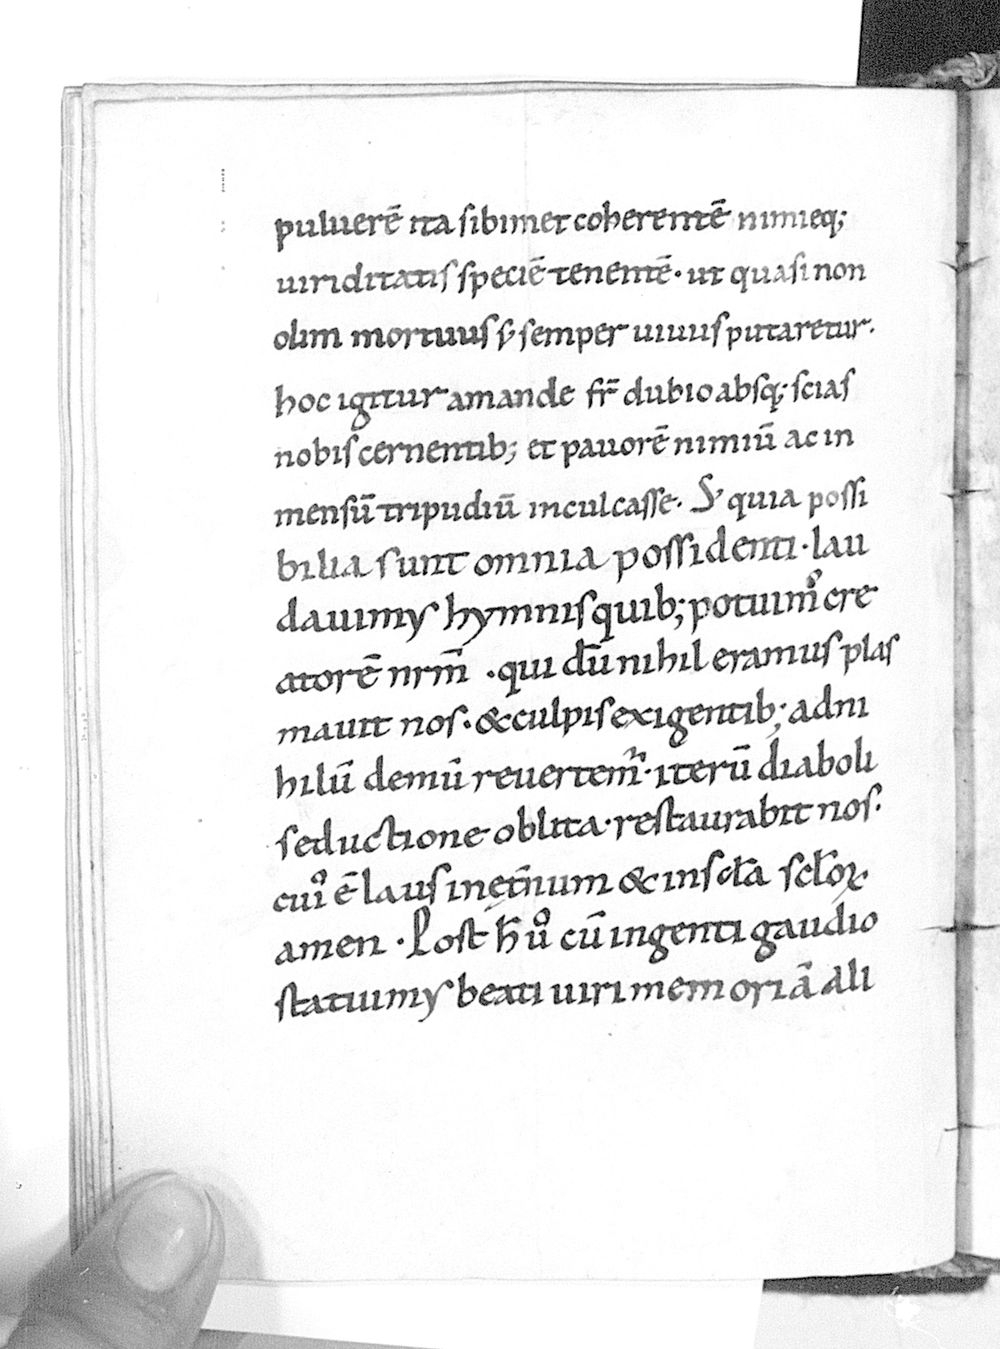 puluerē ita sibimet coherentē nimieq;
uiriditatis speciē tenentē· ut quasi non
olim mortuus s; semper uiuus putaretur.
hoc igitur amande fr̄ dubio absq; scias
nobis cernentib; et pauorē nimiū ac in
mensū tripudiū inculcasse. S; quia possi
bilia sunt omnia possidenti· lau
dauimus hymnis quib; potuim᷒ cre
atorē nrm̄ · qui dū nihil eramus plas
mauit nos· & culpis exigentib; adni
hilū demū reuertem᷒· iterū diaboli
seductione oblita· restaurabit nos·
cui᷒ ē laus inet̄num & in scl̄a scl̄oꝝ·
amen · Post h̄ ůo cū ingenti gaudio
statuimus beati uiri memoriā ali